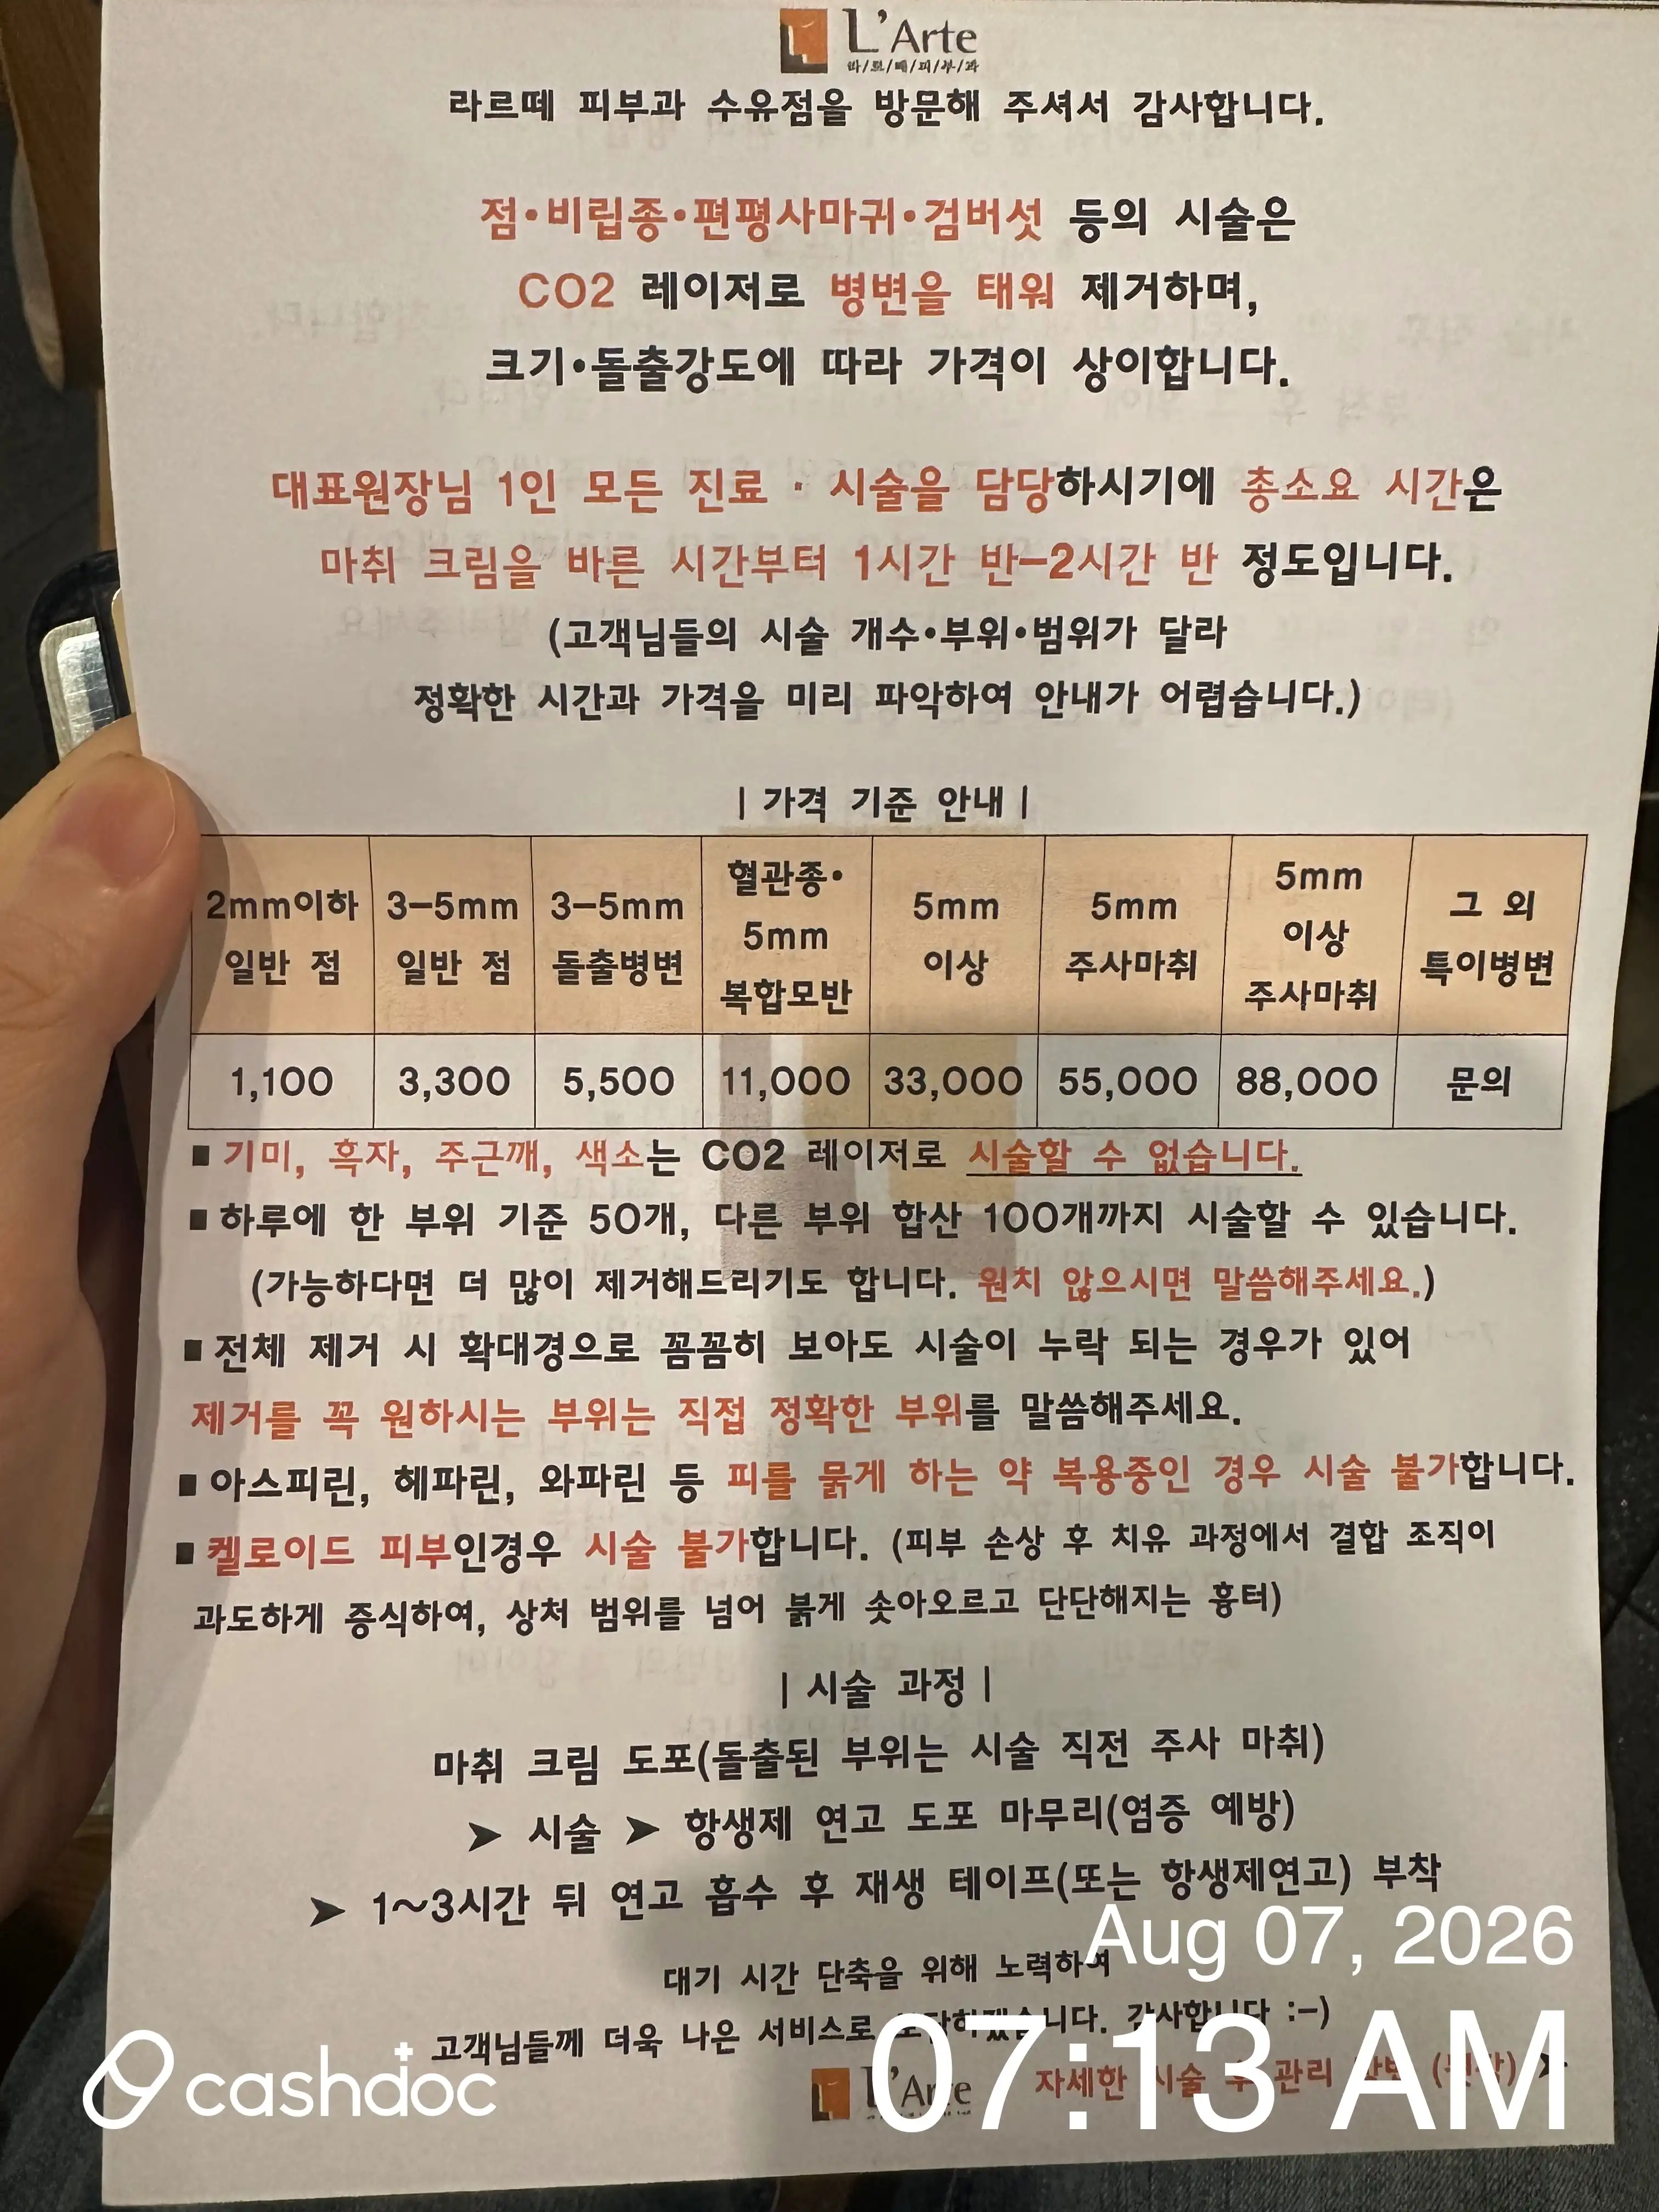 L'Arte
라/르/떼/피/부/과
라르떼 피부과 수유점을 방문해 주셔서 감사합니다.
점•비립종•편평사마귀•검버섯 등의 시술은
CO2 레이저로 병변을 태워 제거하며,
크기•돌출강도에 따라 가격이 상이합니다.
대표원장님 1인 모든 진료 · 시술을 담당하시기에 총소요 시간은
마취 크림을 바른 시간부터 1시간 반-2시간 반 정도입니다.
(고객님들의 시술 개수•부위•범위가 달라
정확한 시간과 가격을 미리 파악하여 안내가 어렵습니다.)
| 가격 기준 안내 |
2mm이하 일반 점 | 3-5mm 일반 점 | 3-5mm 돌출병변 | 혈관종• 5mm 복합모반 | 5mm 이상 | 5mm 주사마취 | 5mm 이상 주사마취 | 그 외 특이병변
1,100 | 3,300 | 5,500 | 11,000 | 33,000 | 55,000 | 88,000 | 문의
■ 기미, 흑자, 주근깨, 색소는 CO2 레이저로 시술할 수 없습니다.
■ 하루에 한 부위 기준 50개, 다른 부위 합산 100개까지 시술할 수 있습니다.
(가능하다면 더 많이 제거해드리기도 합니다. 원치 않으시면 말씀해주세요.)
■ 전체 제거 시 확대경으로 꼼꼼히 보아도 시술이 누락 되는 경우가 있어
제거를 꼭 원하시는 부위는 직접 정확한 부위를 말씀해주세요.
■ 아스피린, 헤파린, 와파린 등 피를 묽게 하는 약 복용중인 경우 시술 불가합니다.
■ 켈로이드 피부인경우 시술 불가합니다. (피부 손상 후 치유 과정에서 결합 조직이
과도하게 증식하여, 상처 범위를 넘어 붉게 솟아오르고 단단해지는 흉터)
| 시술 과정 |
마취 크림 도포(돌출된 부위는 시술 직전 주사 마취)
➤ 시술 ➤ 항생제 연고 도포 마무리(염증 예방)
➤ 1~3시간 뒤 연고 흡수 후 재생 테이프(또는 항생제연고) 부착
Aug 07, 2026
대기 시간 단축을 위해 노력하여
고객님들께 더욱 나은 서비스로 감사합니다 :-)
07:13 AM
cashdoc
L'Arte
자세한 시술 후 관리